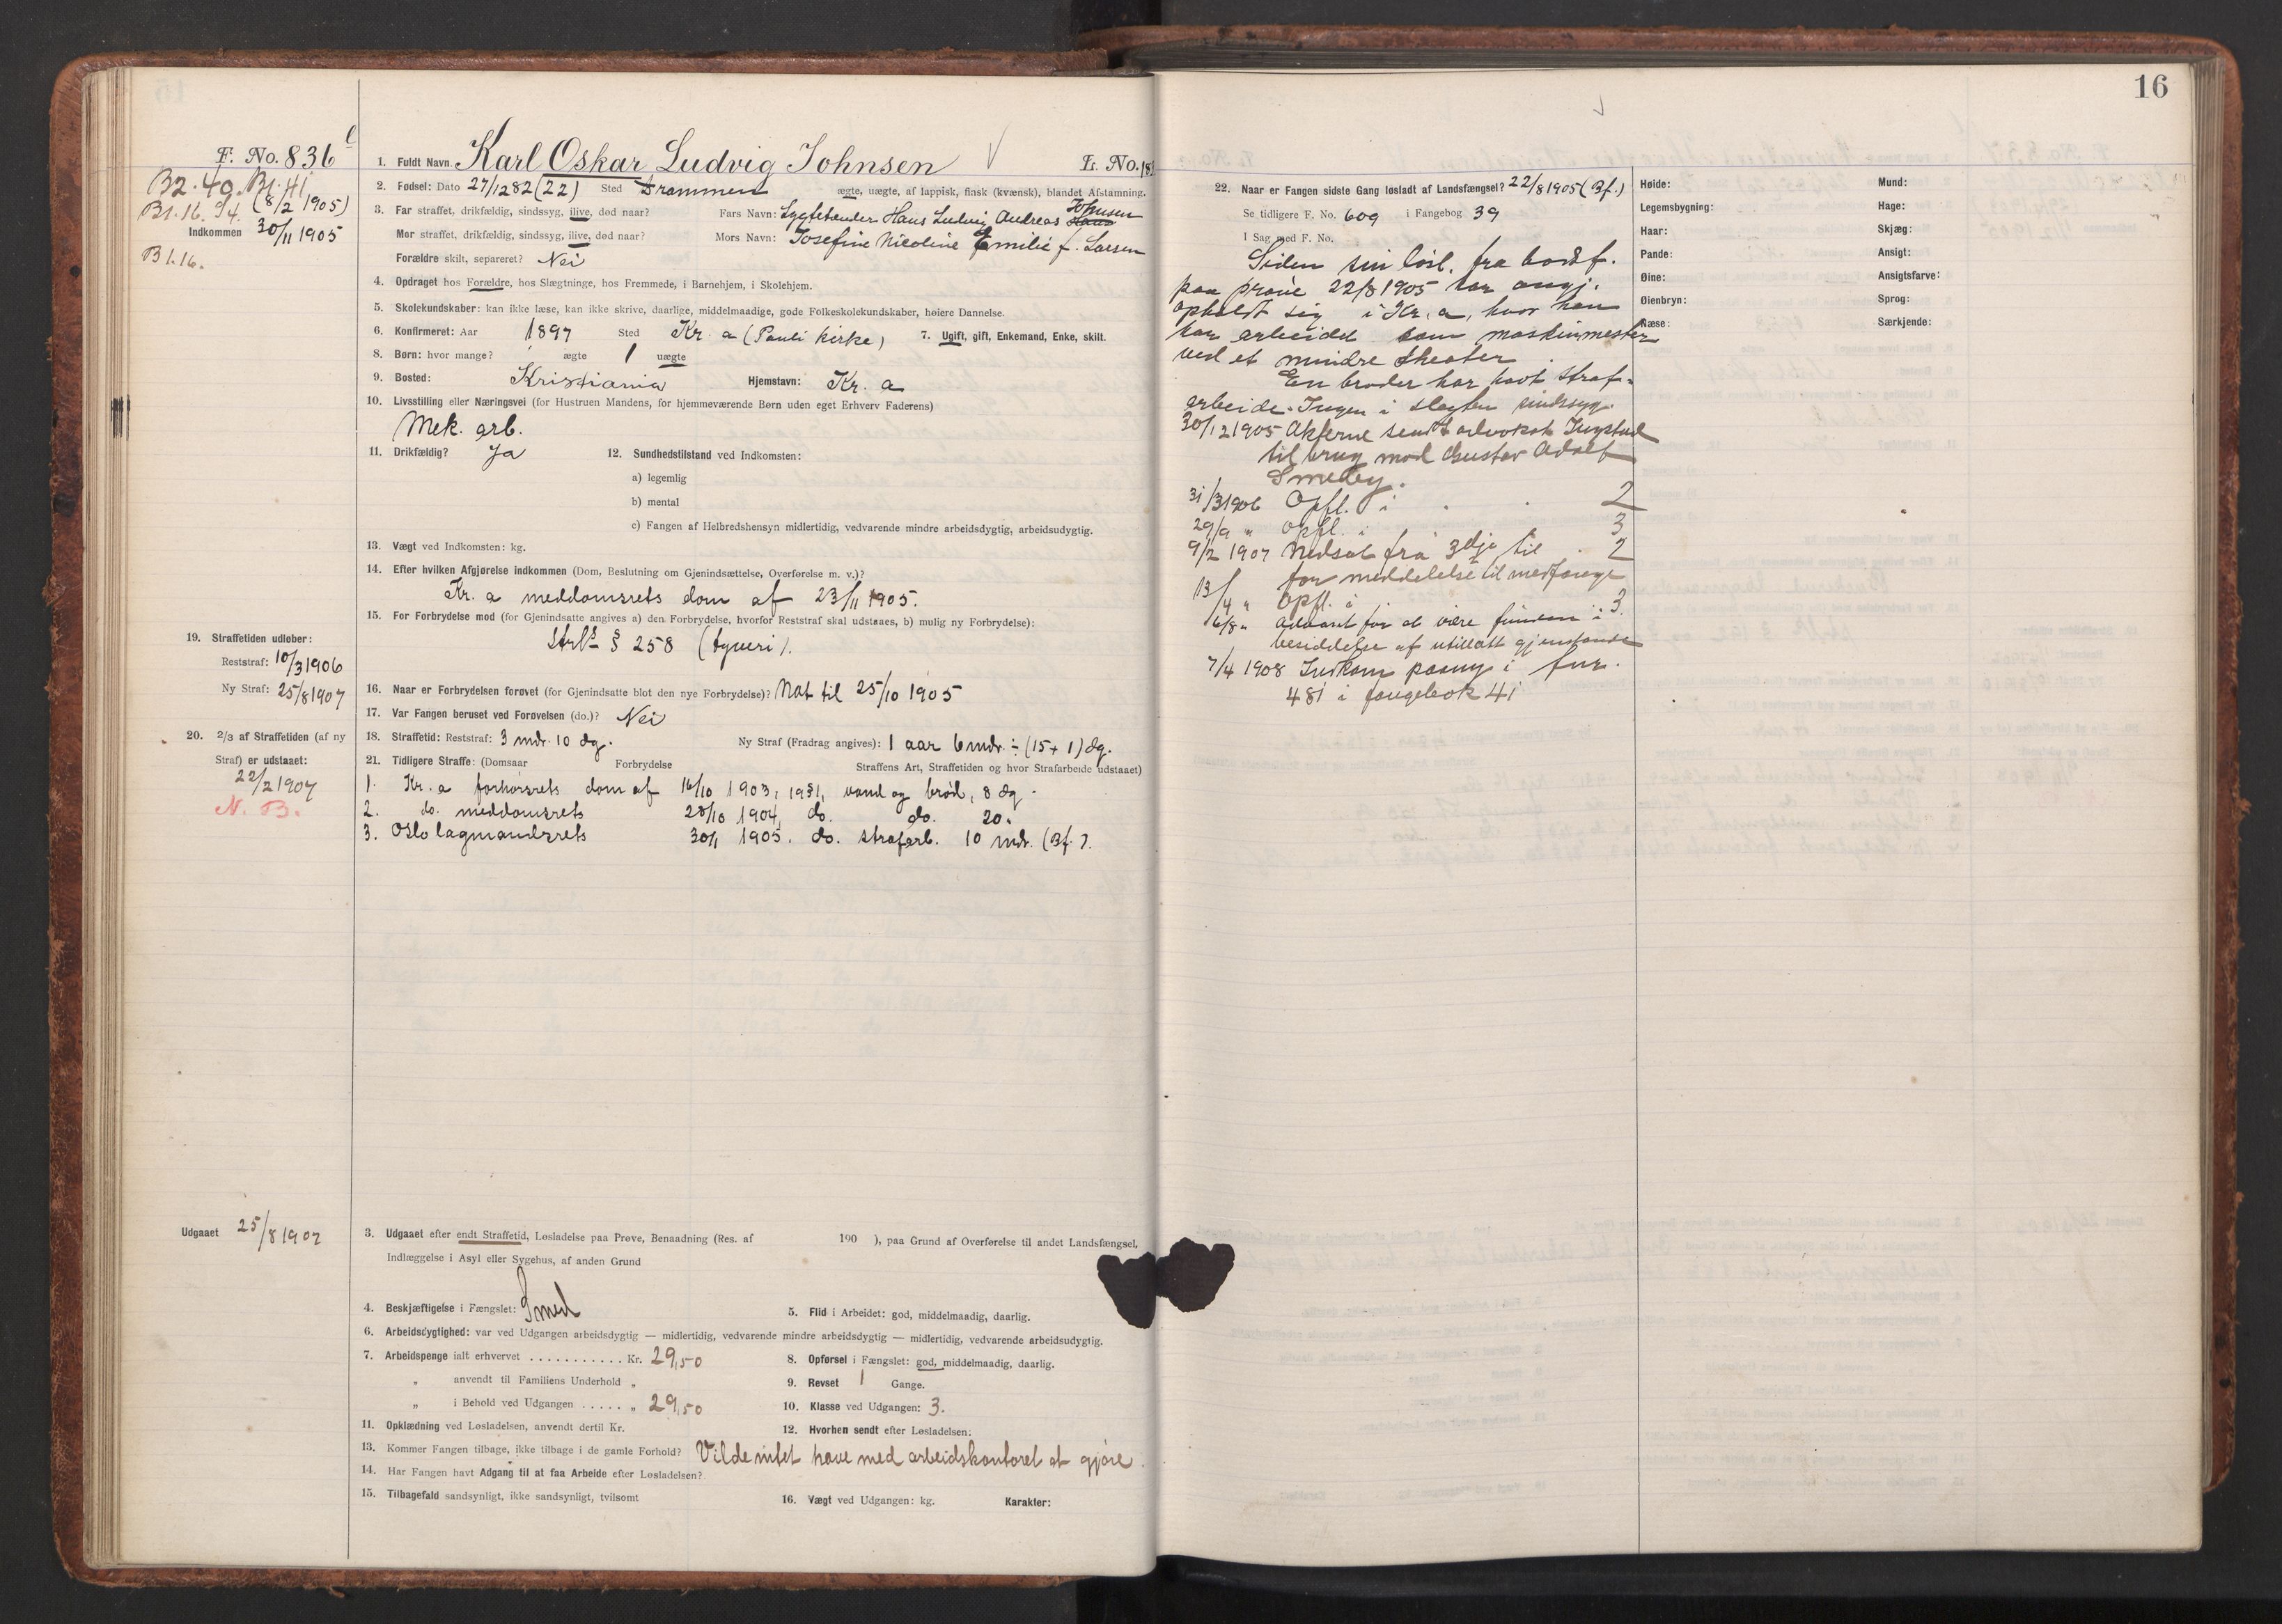 16
F. No. 836
B2. 40. B1. 41.
(8/2 1905)
B1. 16. 94.
Indkommen 30/11 1905
B1. 16.
1. Fuldt Navn. Karl Oskar Ludvig Johnsen L. No.
2. Fødsel: Dato 27/12 82 (22) Sted Drammen ægte, uægte, af lappisk, finsk (kvænsk), blandet Afstamning.
3. Far straffet, drikfældig, sindssyg, ilive, død naar? Fars Navn: Lygtetender Hans Ludvig Andreas Johnsen
Mor straffet, drikfældig, sindssyg, ilive, død naar? Mors Navn: Josefine Nicoline Emilie f. Larsen
Forældre skilt, separeret? Nei
4. Opdraget hos Forældre, hos Slægtninge, hos Fremmede, i Barnehjem, i Skolehjem.
5. Skolekundskaber: kan ikke læse, kan ikke skrive, daarlige, middelmaadige, gode Folkeskolekundskaber, høiere Dannelse.
6. Konfirmeret: Aar 1897 Sted Kr. a (Pauli Kirke) 7. Ugift, gift, Enkemand, Enke, skilt.
8. Børn: hvor mange? ægte 1 uægte
9. Bosted: Kristiania Hjemstavn: Kr. a
10. Livsstilling eller Næringsvei (for Hustruen Mandens, for hjemmeværende Børn uden eget Erhverv Faderens)
Mek. arb.
11. Drikfældig? Ja 12. Sundhedstilstand ved Indkomsten:
a) legemlig
b) mental
c) Fangen af Helbredshensyn midlertidig, vedvarende mindre arbeidsdygtig, arbeidsudygtig.
13. Vægt ved Indkomsten: kg.
14. Efter hvilken Afgjørelse indkommen (Dom, Beslutning om Gjenindsættelse, Overførelse m. v.)?
Kr. a meddomsrets dom af 23/11 1905.
15. For Forbrydelse mod (for Gjenindsatte angives a) den Forbrydelse, hvorfor Reststraf skal udstaaes, b) mulig ny Forbrydelse):
Strl. § 258 (tyveri).
19. Straffetiden udløber:
Reststraf: 10/3 1906
Ny Straf: 25/8 1907
16. Naar er Forbrydelsen forøvet (for Gjenindsatte blot den nye Forbrydelse)? Nat til 25/10 1905
17. Var Fangen beruset ved Forøvelsen (do.)? Nei
18. Straffetid: Reststraf: 3 mdr. 10 dg. Ny Straf (Fradrag angives): 1 aar 6 mdr. ÷ (15+1) dg.
20. 2/3 af Straffetiden (af ny
Straf) er udstaaet:
22/2 1907
N. B.
21. Tidligere Straffe: (Domsaar Forbrydelse Straffens Art, Straffetiden og hvor Strafarbeide udstaaet)
1. Kr. a forhørsrets dom af 16/10 1903, vand og brød, 8 dg.
2. do. meddomsrets 28/10 1904, do. do. 20.
3. Oslo lagmandsrets 30/1 1905. do. strafarb. 10 mdr. (Bf.).
Udgaaet 25/8 1907
3. Udgaaet efter endt Straffetid, Løsladelse paa Prøve, Benaadning (Res. af 190 ), paa Grund af Overførelse til andet Landsfængsel,
Indlæggelse i Asyl eller Sygehus, af anden Grund
4. Beskjæftigelse i Fængslet: Smed 5. Flid i Arbeidet: god, middelmaadig, daarlig.
6. Arbeidsdygtighed: var ved Udgangen arbeidsdygtig — midlertidig, vedvarende mindre arbeidsdygtig — midlertidig, vedvarende arbeidsudygtig.
7. Arbeidspenge ialt erhvervet ........... Kr. 29,50 8. Opførsel i Fængslet: god, middelmaadig, daarlig.
„ anvendt til Familiens Underhold „ 9. Revset 1 Gange.
„ i Behold ved Udgangen ..... „ 29,50 10. Klasse ved Udgangen: 3.
11. Opklædning ved Løsladelsen, anvendt dertil Kr. 12. Hvorhen sendt efter Løsladelsen:
13. Kommer Fangen tilbage, ikke tilbage i de gamle Forhold? Vilde intet have med arbeidskontoret at gjøre.
14. Har Fangen havt Adgang til at faa Arbeide efter Løsladelsen?
15. Tilbagefald sandsynligt, ikke sandsynligt, tvilsomt 16. Vægt ved Udgangen: kg. Karakter:
22. Naar er Fangen sidste Gang løsladt af Landsfængsel? 22/8 1905 (Bf.)
Se tidligere F. No. 609 i Fangebog 39
I Sag med F. No.
Siden sin løsl. fra bodsf.
paa prøve 22/8 1905 har angj.
opholdt sig i Kr. a, hvor han
har arbeidet som maskinmester
ved et mindre theater.
En broder har havt straf-
arbeide. Ingen i slægten sindssyg.
30/12 1905 Akterne sendt advokat Ingstad
til brug mod Gustav Adolf
Smedby.
31/3 1906 Opfl. i . . 2
29/9 " Opfl. i 3
9/2 1907 Nedsat fra 3dje til . 2
for meddelelse til medfange
13/4 " Opfl. i 3.
6/8 " Advaret for at være funden i
besiddelse af utilladt gjenstande
7/4 1908 Indkom paany i fnr.
481 i fangebok 41
Høide:
Legemsbygning:
Haar:
Pande:
Øine:
Øienbryn:
Næse:
Mund:
Hage:
Skjæg:
Ansigt:
Ansigtsfarve:
Sprog:
Særkjende: